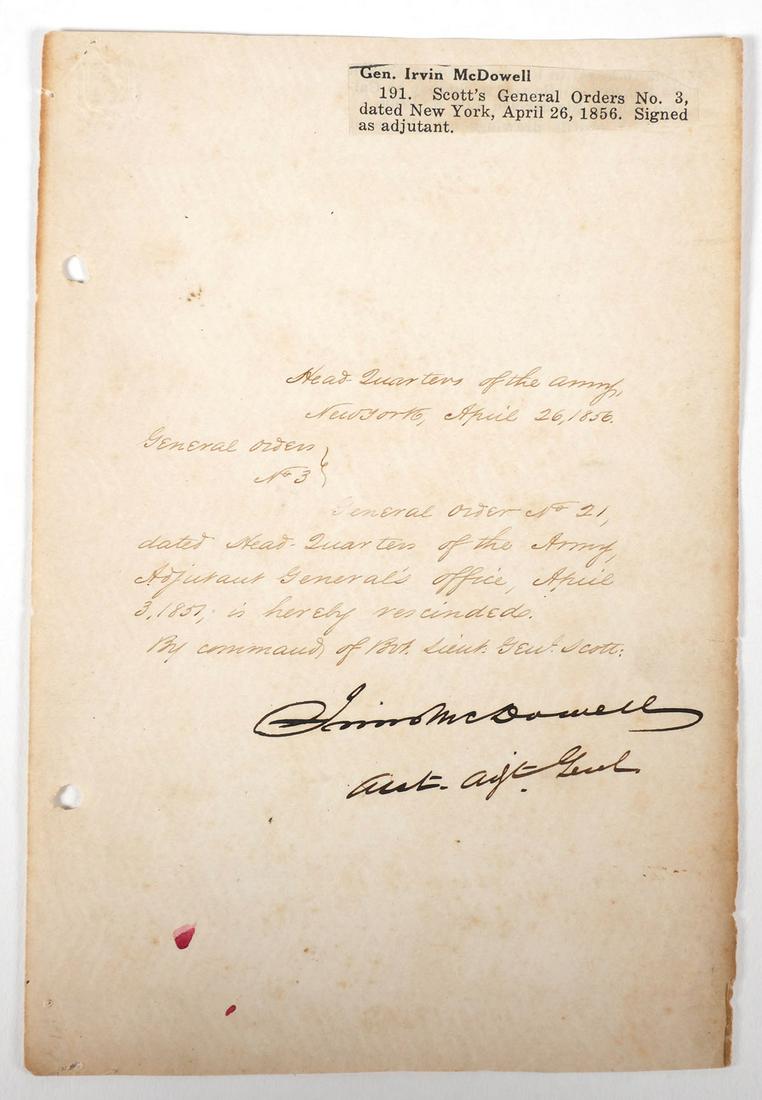 Gen. Irvin McDowell
191. Scott's General Orders No. 3,
dated New York, April 26, 1856. Signed
as adjutant.
Head-Quarters of the Army,
New York, April 26, 1856.
General Orders
No 3
General Order No 21,
dated Head-Quarters of the Army,
Adjutant General's Office, April
3, 1851, is hereby rescinded.
By command of Bvt. Lieut. Genl. Scott:
Irvin McDowell
Asst. Adjt. Genl.